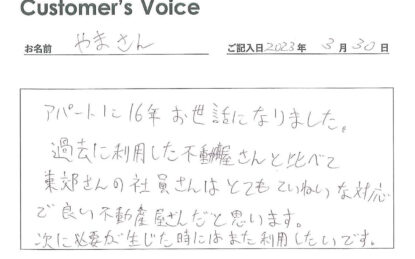 Customer's Voice
お名前 やまさん ご記入日 2023年 3月30日
アパートに16年お世話になりました。
過去に利用した不動屋さんと比べて
東郊さんの社員さんはとてもていねいな対応
で良い不動産屋さんだと思います。
次に必要が生じた時にはまた利用したいです。